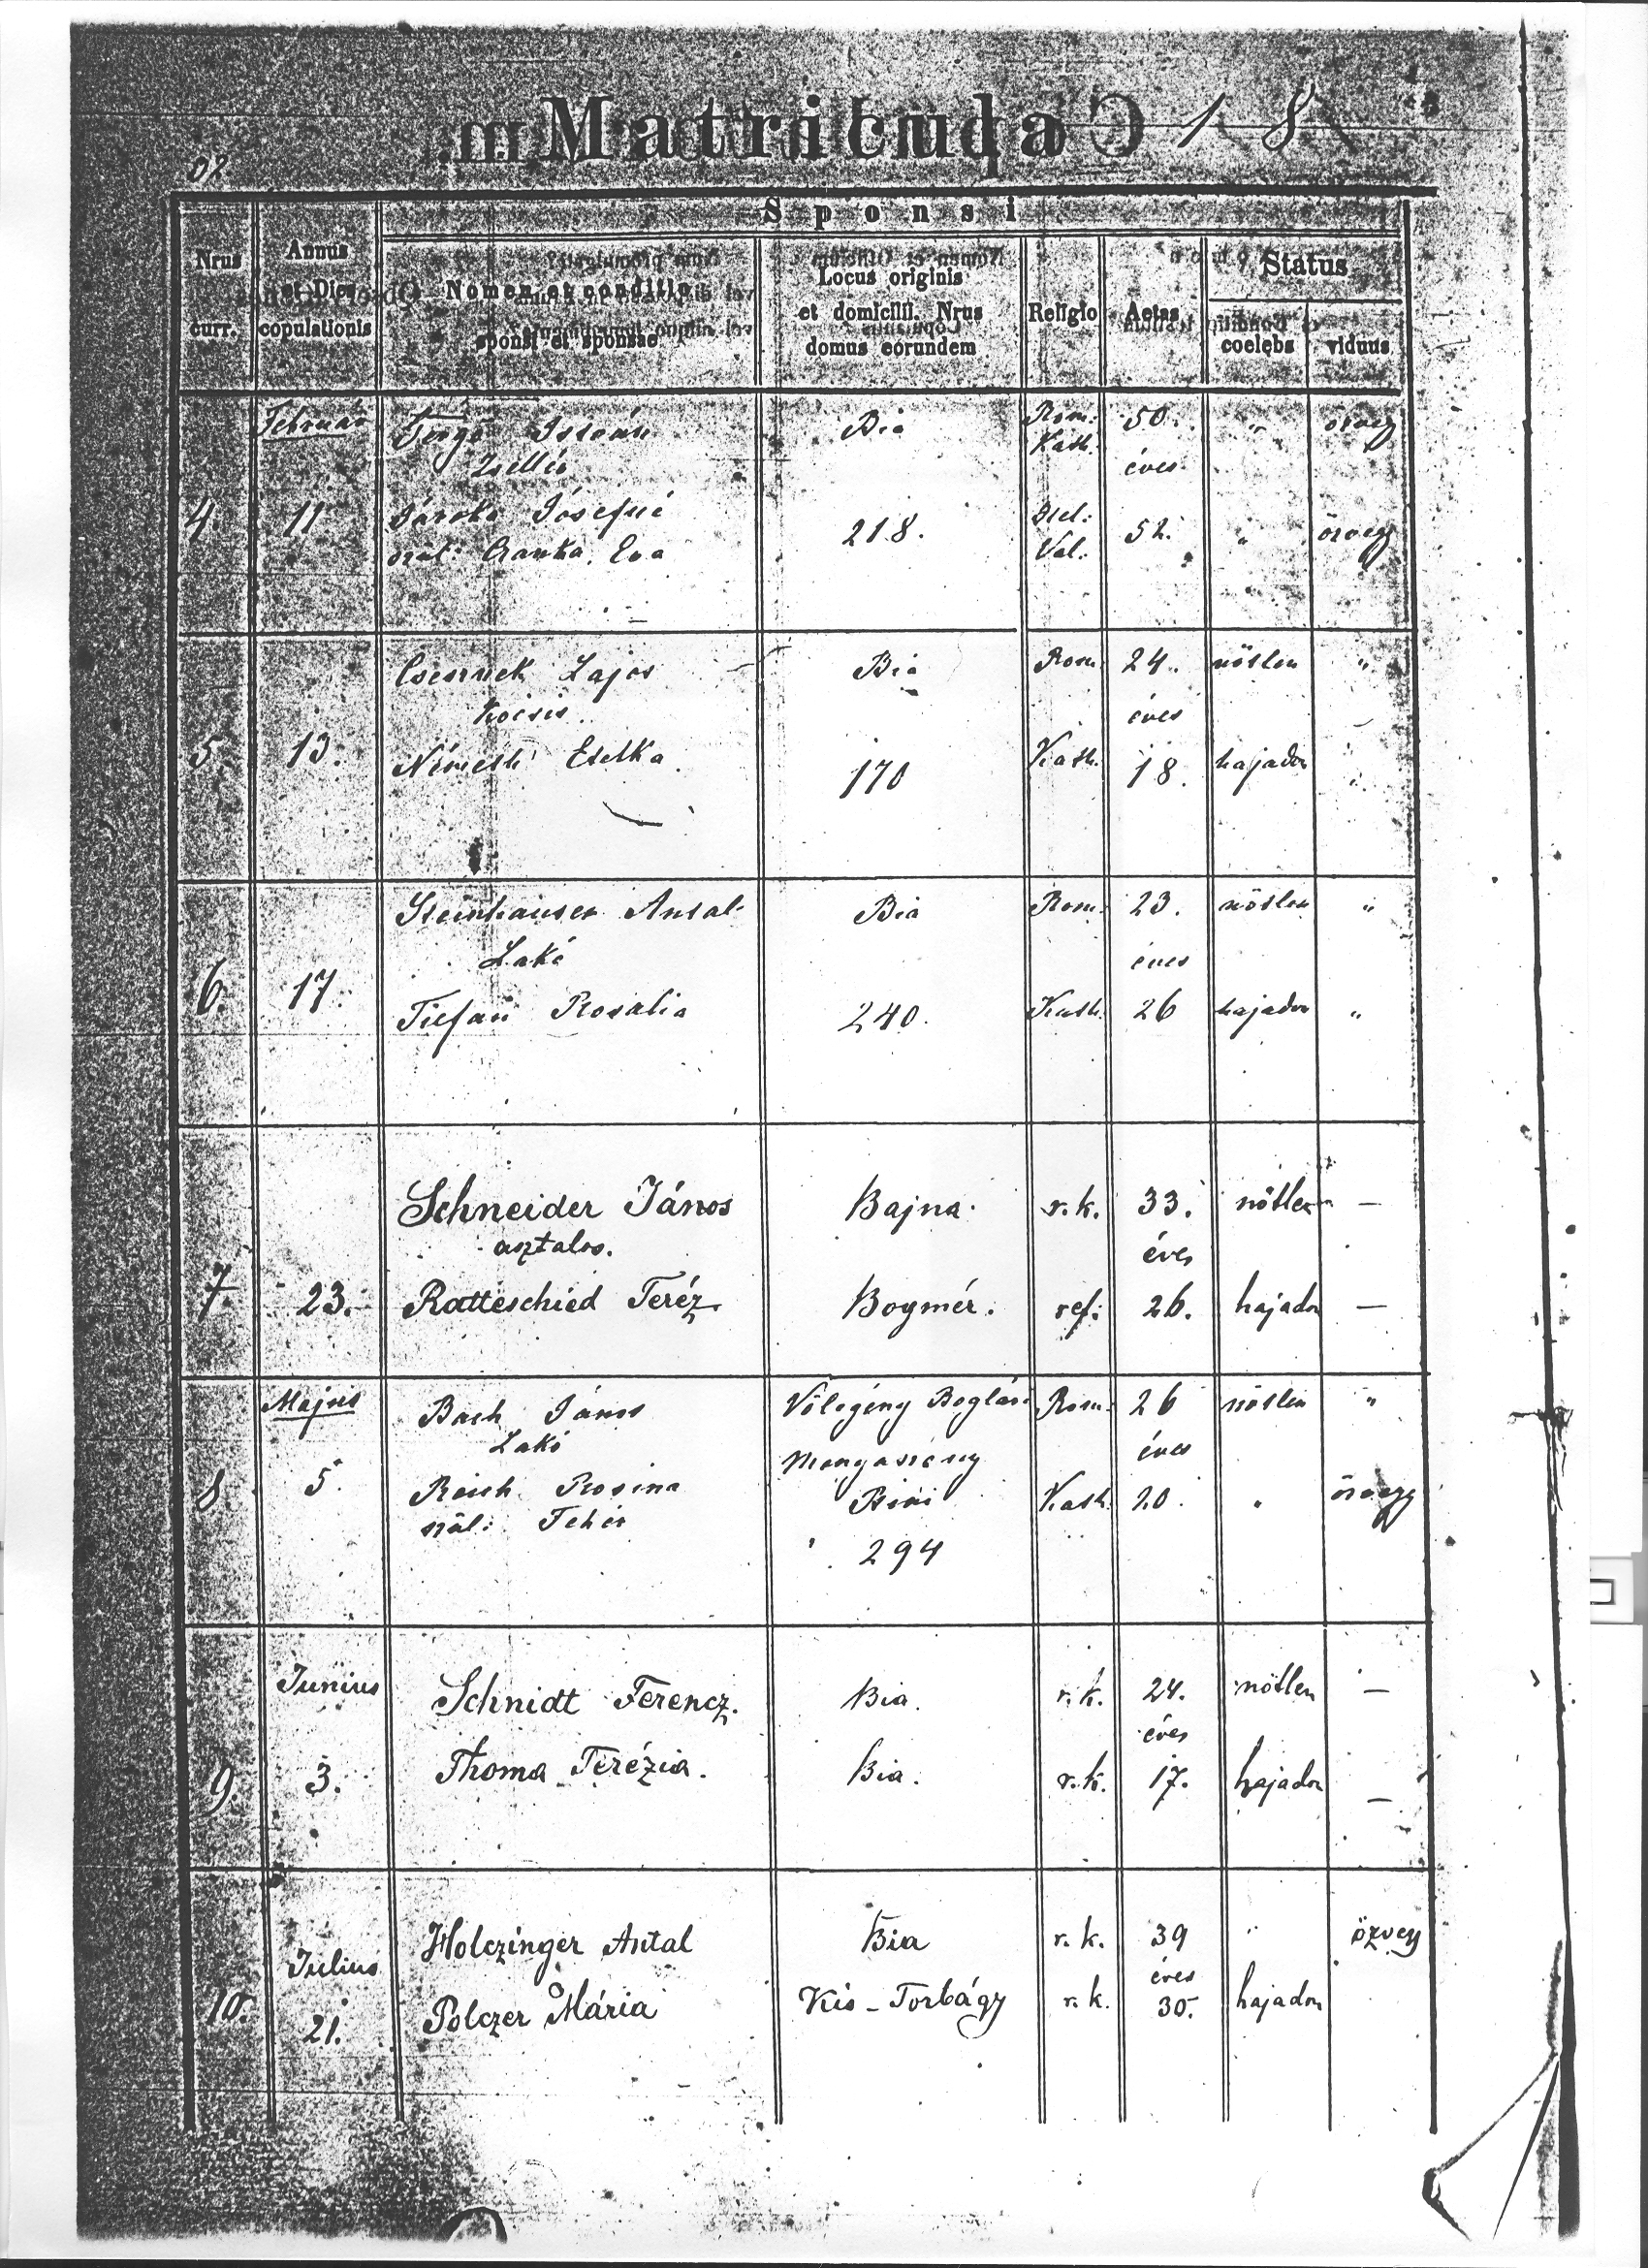 Matricula
Sponsi
Nrus curr.
Annus et Dies copulationis
Nomen et conditio sponsi et sponsae
Locus originis et domicilii. Nrus domus eorundem
Religio
Aetas
Status
coelebs
viduus
Február
István Bia Rom: 50. " özvegy
Zsellér Kath. éves
4. 11 Józsefné 218. Hel: 52. " özvegy
szül: Éva Val.
Lajos Bia Rom. 24. nötlen "
Kocsis éves
5. 13. Németh Etelka 170 Kath. 18. hajadon "
Steinhauser Antal Bia Rom. 23. nötlen "
Lakó éves
6. 17. Rosalia 240. Kath. 26 hajadon "
Schneider János Bajna. r. k. 33. nötlen —
asztalos. éves
7. 23. Ratteschied Teréz Bogmér. ref: 26. hajadon —
Május Bach János Völegény Boglári Rom. 26 nötlen "
Lakó Menyasszony éves
8. 5. Reich Rosina Biai Kath. 20. " özvegy
szül: Fehér 294
Junius Schnidt Ferencz. Bia. r. k. 24. nötlen —
éves
9. 3. Thoma Terézia. Bia. r. k. 17. hajadon —
Julius Holczinger Antal Bia r. k. 39 " özvegy
éves
10. 21. Polczer Mária Kis-Torbágy r. k. 30. hajadon